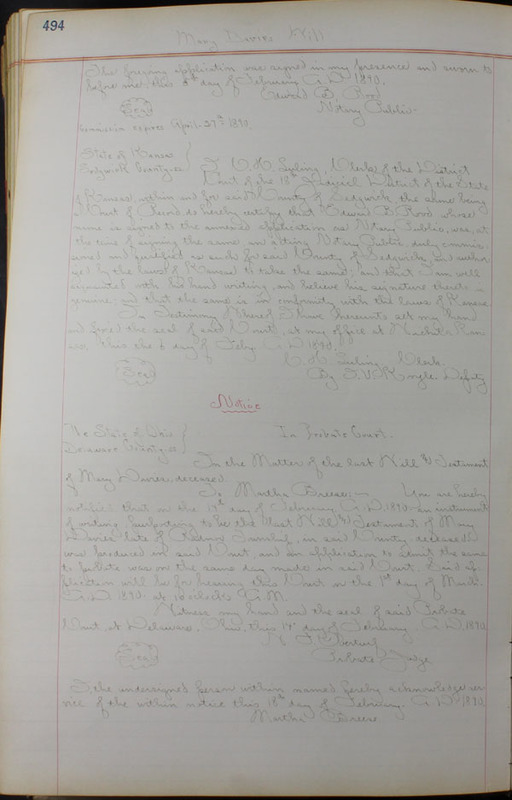 494
Mary Davies Will
The foregoing application was signed in my presence and sworn to
before me this 5th day of February A.D. 1890.
Edward B. Rood
Seal Notary Public
Commission expires April 27th 1890.
State of Kansas
Sedgwick County ss. I, C. H. Clerk of the District
Court of the 18th Judicial District of the State
of Kansas, within and for said County of Sedgwick, the same being
a Court of Record, do hereby certify that Edward B. Rood whose
name is signed to the annexed application as Notary Public, was, at
the time of signing the same an acting Notary Public, duly commis-
sioned and qualified as such for said County of Sedgwick, and author-
ized by the laws of Kansas to take the same, and that I am well
acquainted with his hand writing, and believe his signature thereto is
genuine and that the same is in conformity with the laws of Kansas.
In Testimony Whereof I have hereunto set my hand
and fixed the seal of said Court, at my office at Wichita Kan-
sas, this the 6 day of Feby. A.D. 1890.
C. H. Clerk.
Seal By Deputy
Notice
The State of Ohio In Probate Court.
Delaware County ss.
In the Matter of the last Will & Testament
of Mary Davies, deceased.
To Martha Breese, — You are hereby
notified that on the day of February A.D. 1890 an instrument
of writing, purporting to be the last Will & Testament of Mary
Davies late of Radnor Township, in said County, deceased
was produced in said Court, and an application to admit the same
to probate was on the same day made in said Court. Said ap-
plication will be for hearing this Court on the 1st day of March
A.D. 1890. at 10 o'clock A.M.
Witness my hand and the seal of said Probate
Court, at Delaware, Ohio, this day of February A.D. 1890.
Seal Probate Judge
I the undersigned person within named hereby acknowledge ser-
vice of the within notice this 18th day of February. A.D. 1890.
Martha Breese